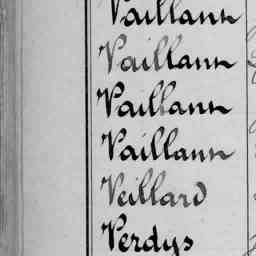 Vaillant
Vaillant
Vaillant
Vaillant
Veillard
Verdys